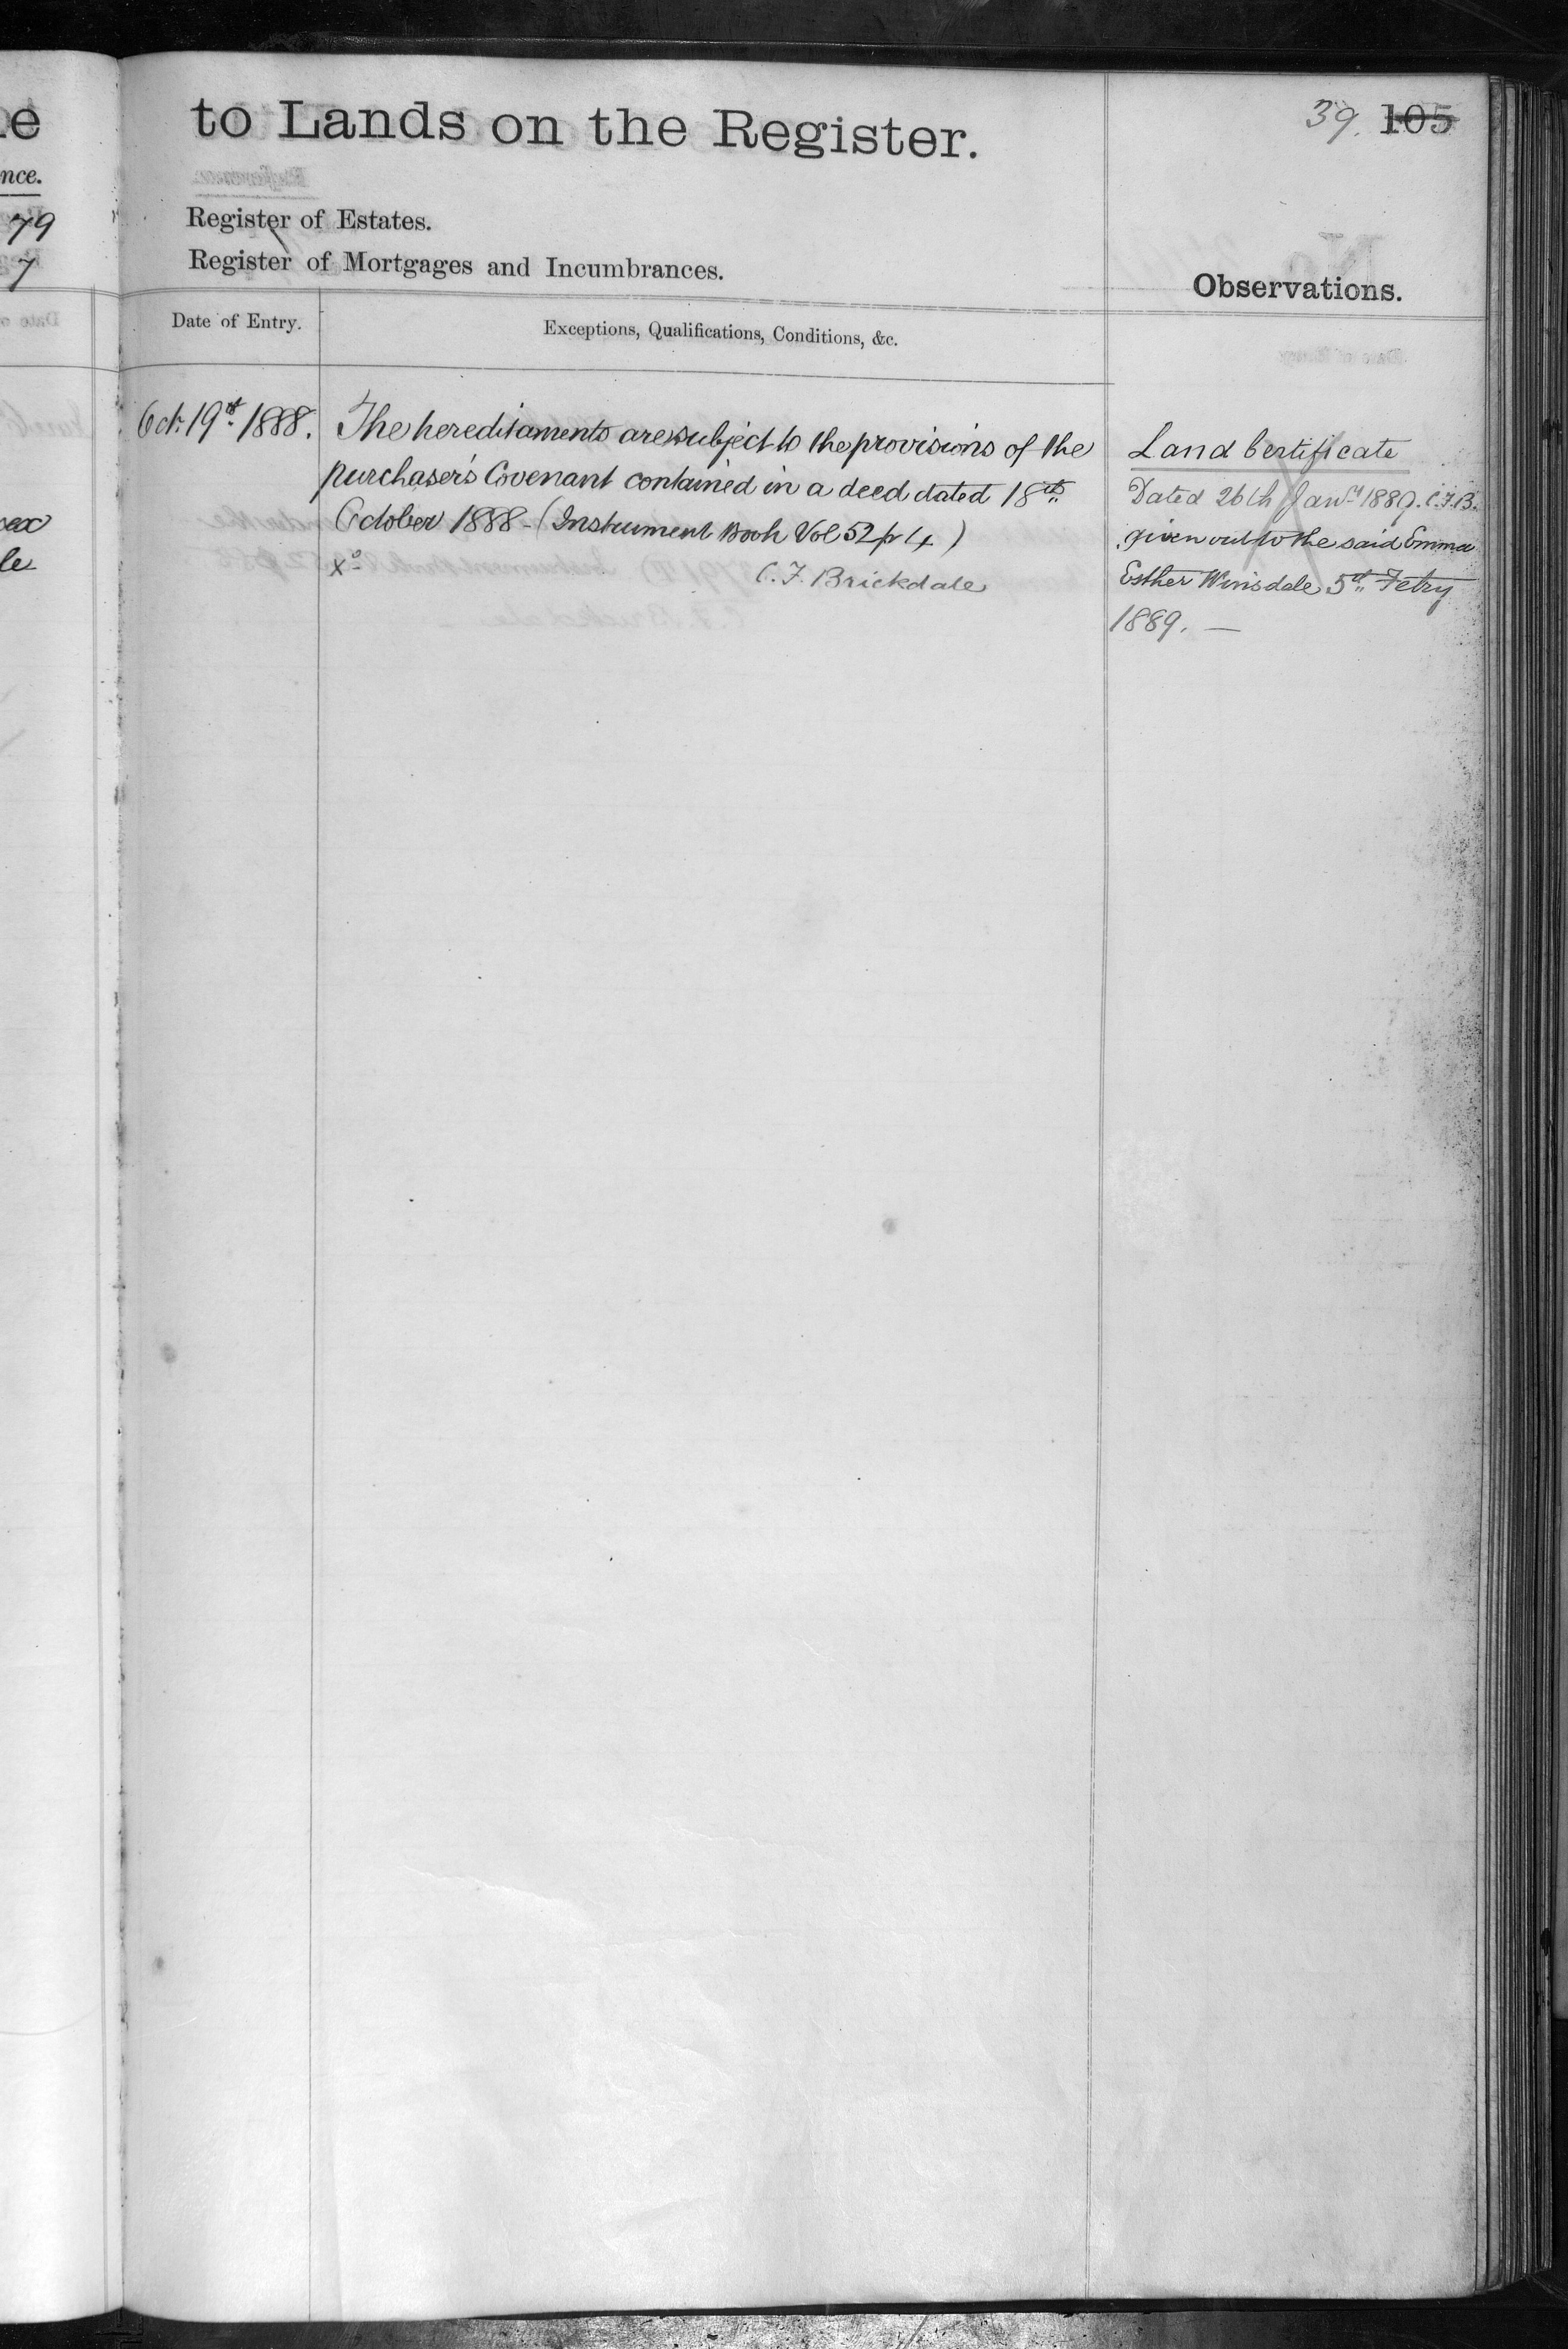 to Lands on the Register.
39. 105
Register of Estates.
Register of Mortgages and Incumbrances.
Observations.
Date of Entry.
Exceptions, Qualifications, Conditions, &c.
Oct. 19th 1888.
The hereditaments are subject to the provisions of the
purchaser's Covenant contained in a deed dated 18th
October 1888 - (Instrument Book Vol 52 p 4)
C. F. Brickdale
Land Certificate
Dated 26th Jany 1889. C.F.B.
given out to the said Emma
Esther Winsdale 5th Febry
1889. —
nce.
79
7